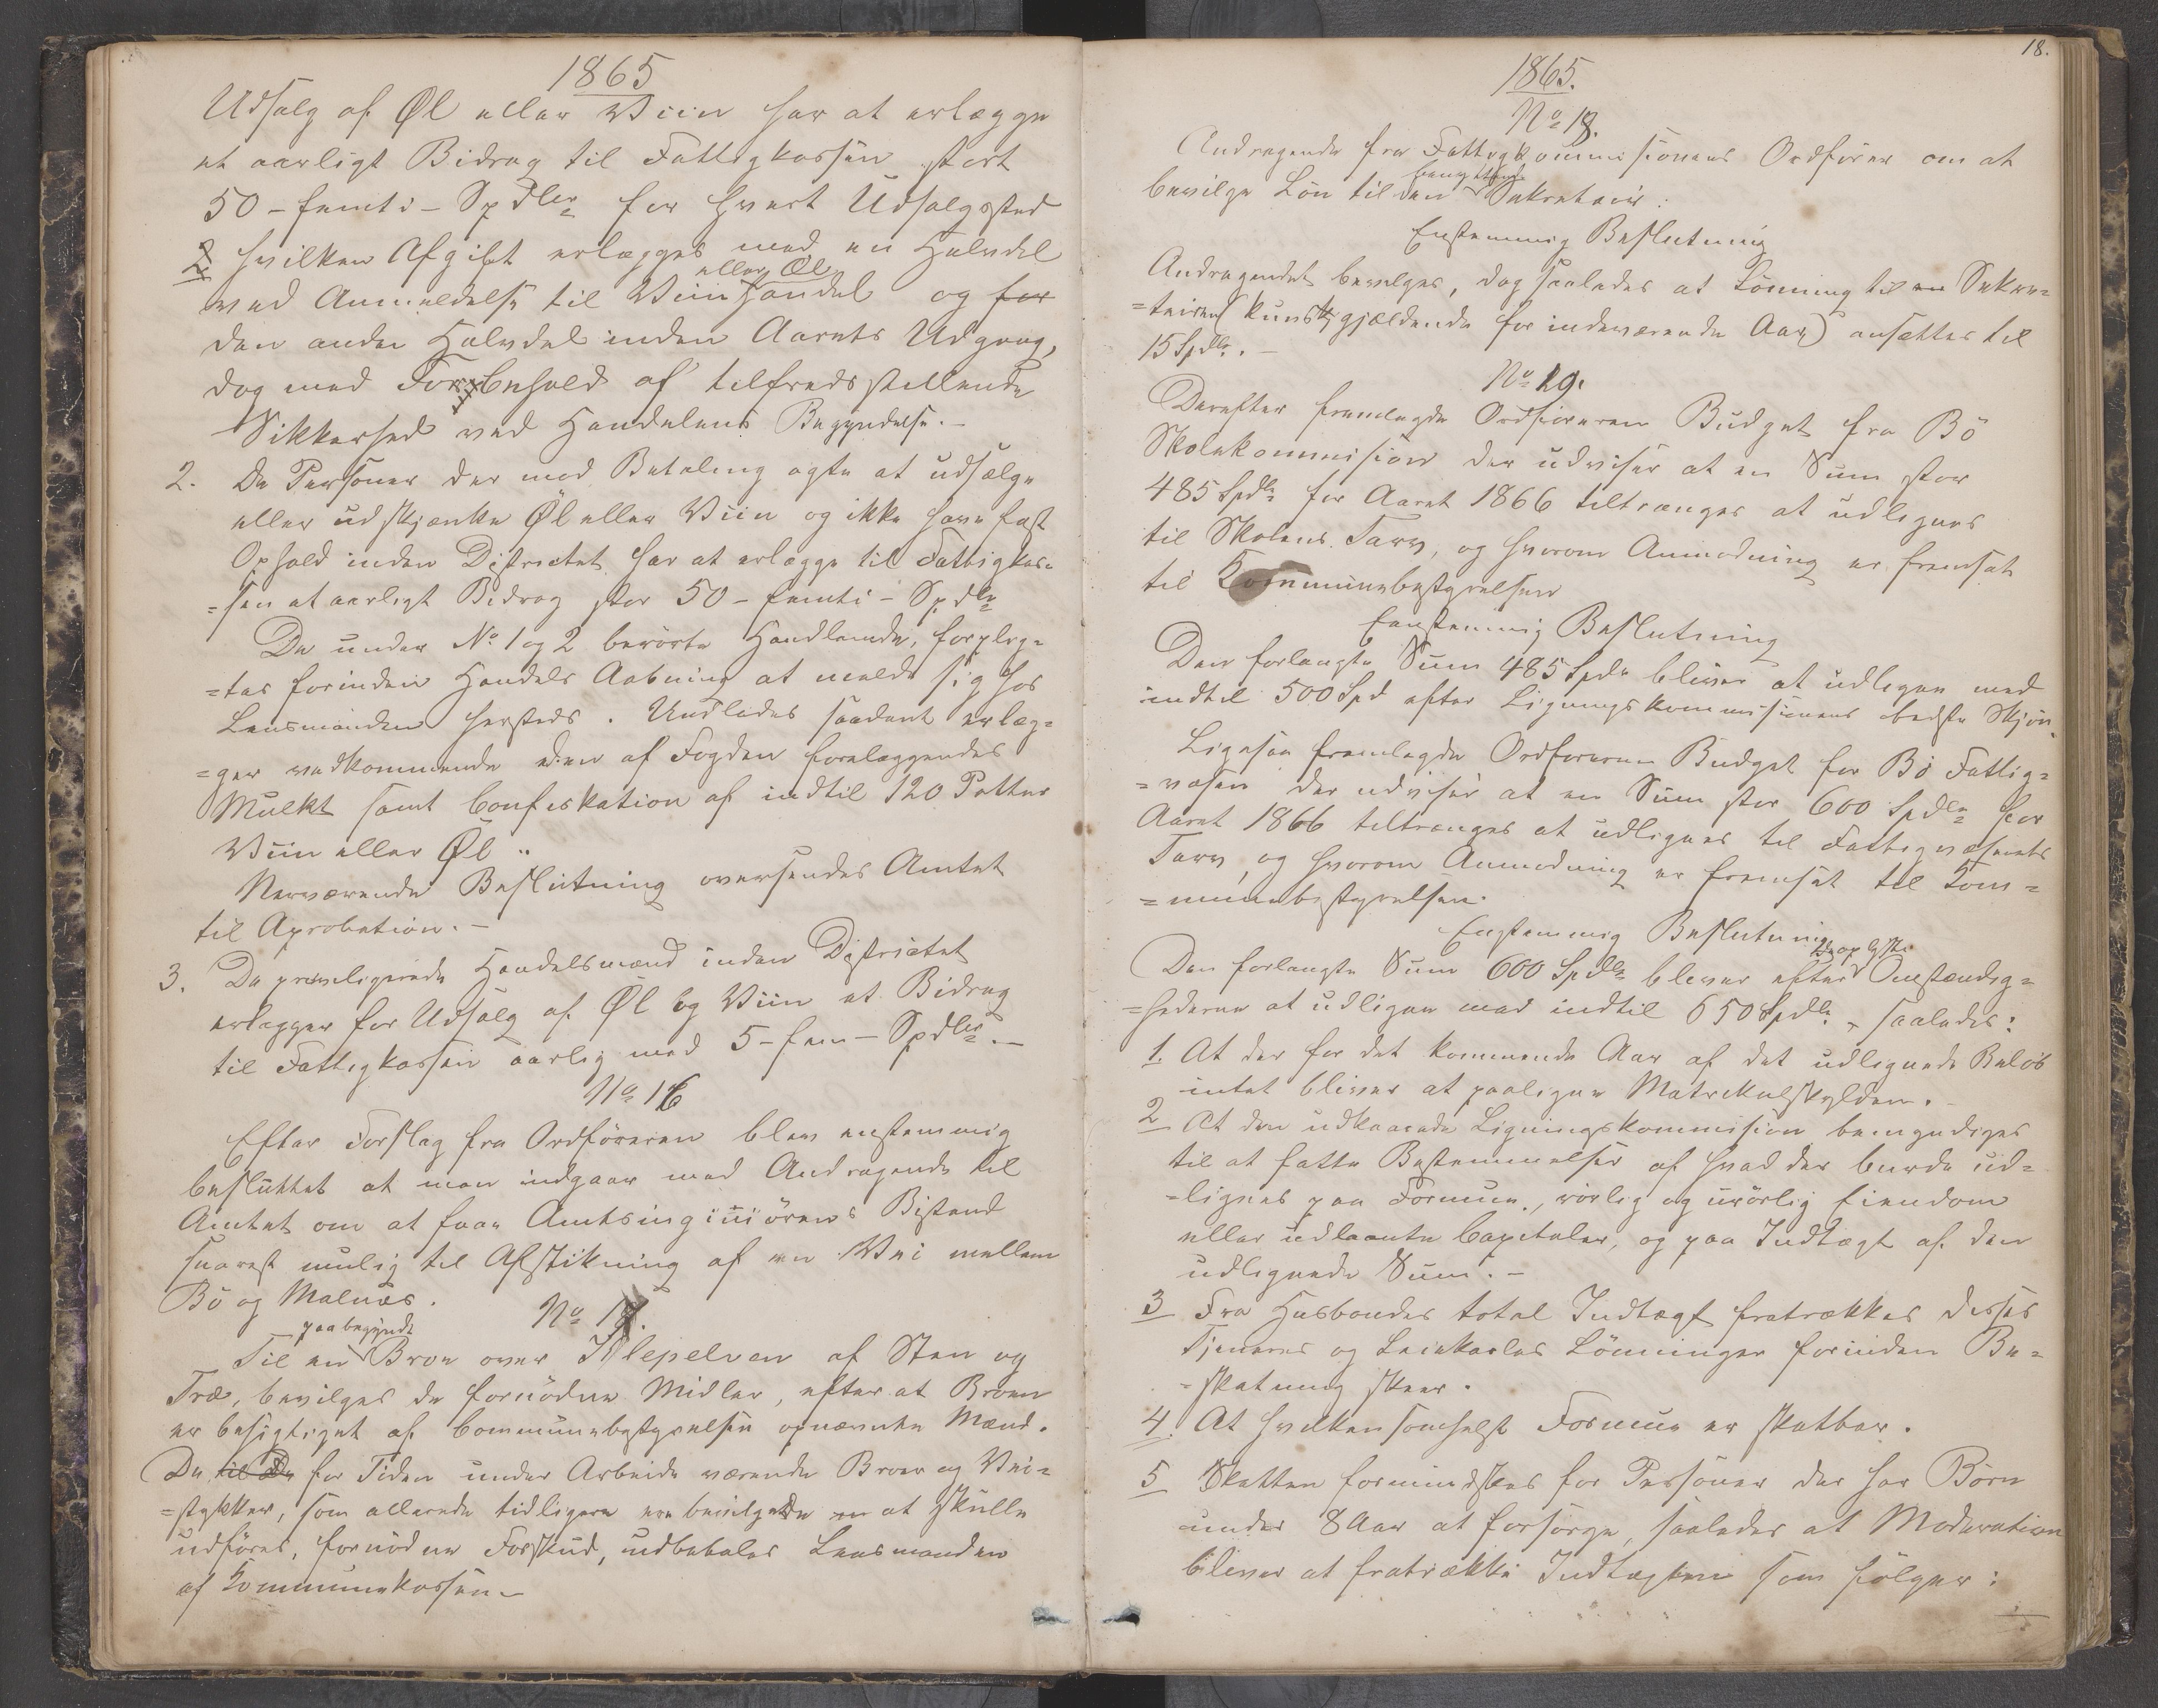 1865
Udsalg af Øl eller Viin har at erlægge
et aarligt Bidrag til Fattigkassen stort
50 - femti - Spdlr for hvert Udsalgssted
2 hvilken Afgift erlægges med en Halvdel
eller Øl
ved Anmeldelse til Viinhandel og for
den anden Halvdel inden Aarets Udgang,
dog med Forbehold af tilfredsstillende
Sikkerhed ved Handelens Begyndelse. -
2. De Personer der mod Betaling agte at udsælge
eller udskjænke Øl eller Viin og ikke have fast
Ophold inden Districtet har at erlægge til Fattigkas=
=sen et aarligt Bidrag stor 50 - femti - Spdlr
De under No 1 og 2 berörte Handlende, forplig=
=tes forinden Handels Aabning at melde sig hos
Lensmanden hersteds. Undlades saadant erlæg=
=ger vedkommende den af Fogden forelæggendes
Mulkt samt Confiskation af indtil 120 Potter
Viin eller Øl..
Nerværende Beslutning oversendes Amtet
til Aprobation. -
3. De previligerede Handelsmænd inden Districtet
erlægger for Udsalg af Øl og Viin et Bidrag
til Fattigkassen aarlig med 5 - fem - Spdlr. -
No 16
Efter Forslag fra Ordföreren blev enstemmig
besluttet at man indgaar med Andragende til
Amtet om at faae Amtsingeniörens Bistand
snarest mulig til Afstikning af en Vei mellem
Bö og Malnæs.
No 17.
paabegyndt
Til en Broe over Klepelven af Sten og
Træ, bevilges de fornödne Midler, efter at Broen
er besigtiget af Communebestyrelsen opnævnte Mænd.
De til de for Tiden under Arbeide værende Broer og Vei=
=stykker, som allerede tidligere ere bevilgede en at skulle
udföres, fornödne Forskud, udbetales Lensmanden
af Kommunekassen. -
18.
1865.
No 18.
Andragende fra Fattigkommissionens Ordförer om at
benyttede
bevilge Lön til den Sekretair:
Enstemmig Beslutning
Andragendet bevilges, dog saaledes at Lönning til en Sekre=
=tairen (kuns gjældende for indeværende Aar) ansættes til
15 Spdlr. -
No 19.
Derefter fremlagde Ordföreren Budget fra Bö
Skolekommision der udviser at en Sum stor
485 Spdlr for Aaret 1866 tiltrænges at udlignes
til Skolens Tarv, og hvorom Anmodning er fremsat
til Kommunebestyrelsen
Eenstemmig Beslutning
Den forlangte Sum 485 Spdlr bliver at udligne med
indtil 500 Spd efter Ligningskommisionens bedste Skjön.
Ligesaa fremlagde Ordföreren Budget for Bö Fattig=
=væsen der udviser at en Sum stor 600 Spdlr for
Aaret 1866 tiltrænges at udlignes til Fattigvæsenets
Tarv, og hvorom Anmodning er fremsat til Kom=
=munebestyrelsen.
Enstemmig Beslutning
de oplyste
Den forlangte Sum 600 Spdlr bliver efter Omstændig=
=hederne at udligne med indtil 650 Spdlr, saaledes:
1. At der for det kommende Aar af det udlignede Belöb
intet bliver at paaligne Matrikulskylden. -
2 At den udkaarede Ligningskommision bemyndiges
til at fatte Bestemmelser af hvad der burde ud=
=lignes paa Formue, rörlig og urörlig Eiendom
eller udlaante Capitaler, og paa Indtægt af den
udlignede Sum. -
3 Fra Husbondes total Indtægt fratrækkes disses
Tjeneres og Leiekarles Lönninger forinden Be=
=skatning skeer.
4. At hvilkensomhelst Formue er skatbar.
5 Skatten formindskes for Personer der har Börn
under 8 Aar at forsörge, saaledes at Moderation
bliver at fratrække Indtægten som fölger: